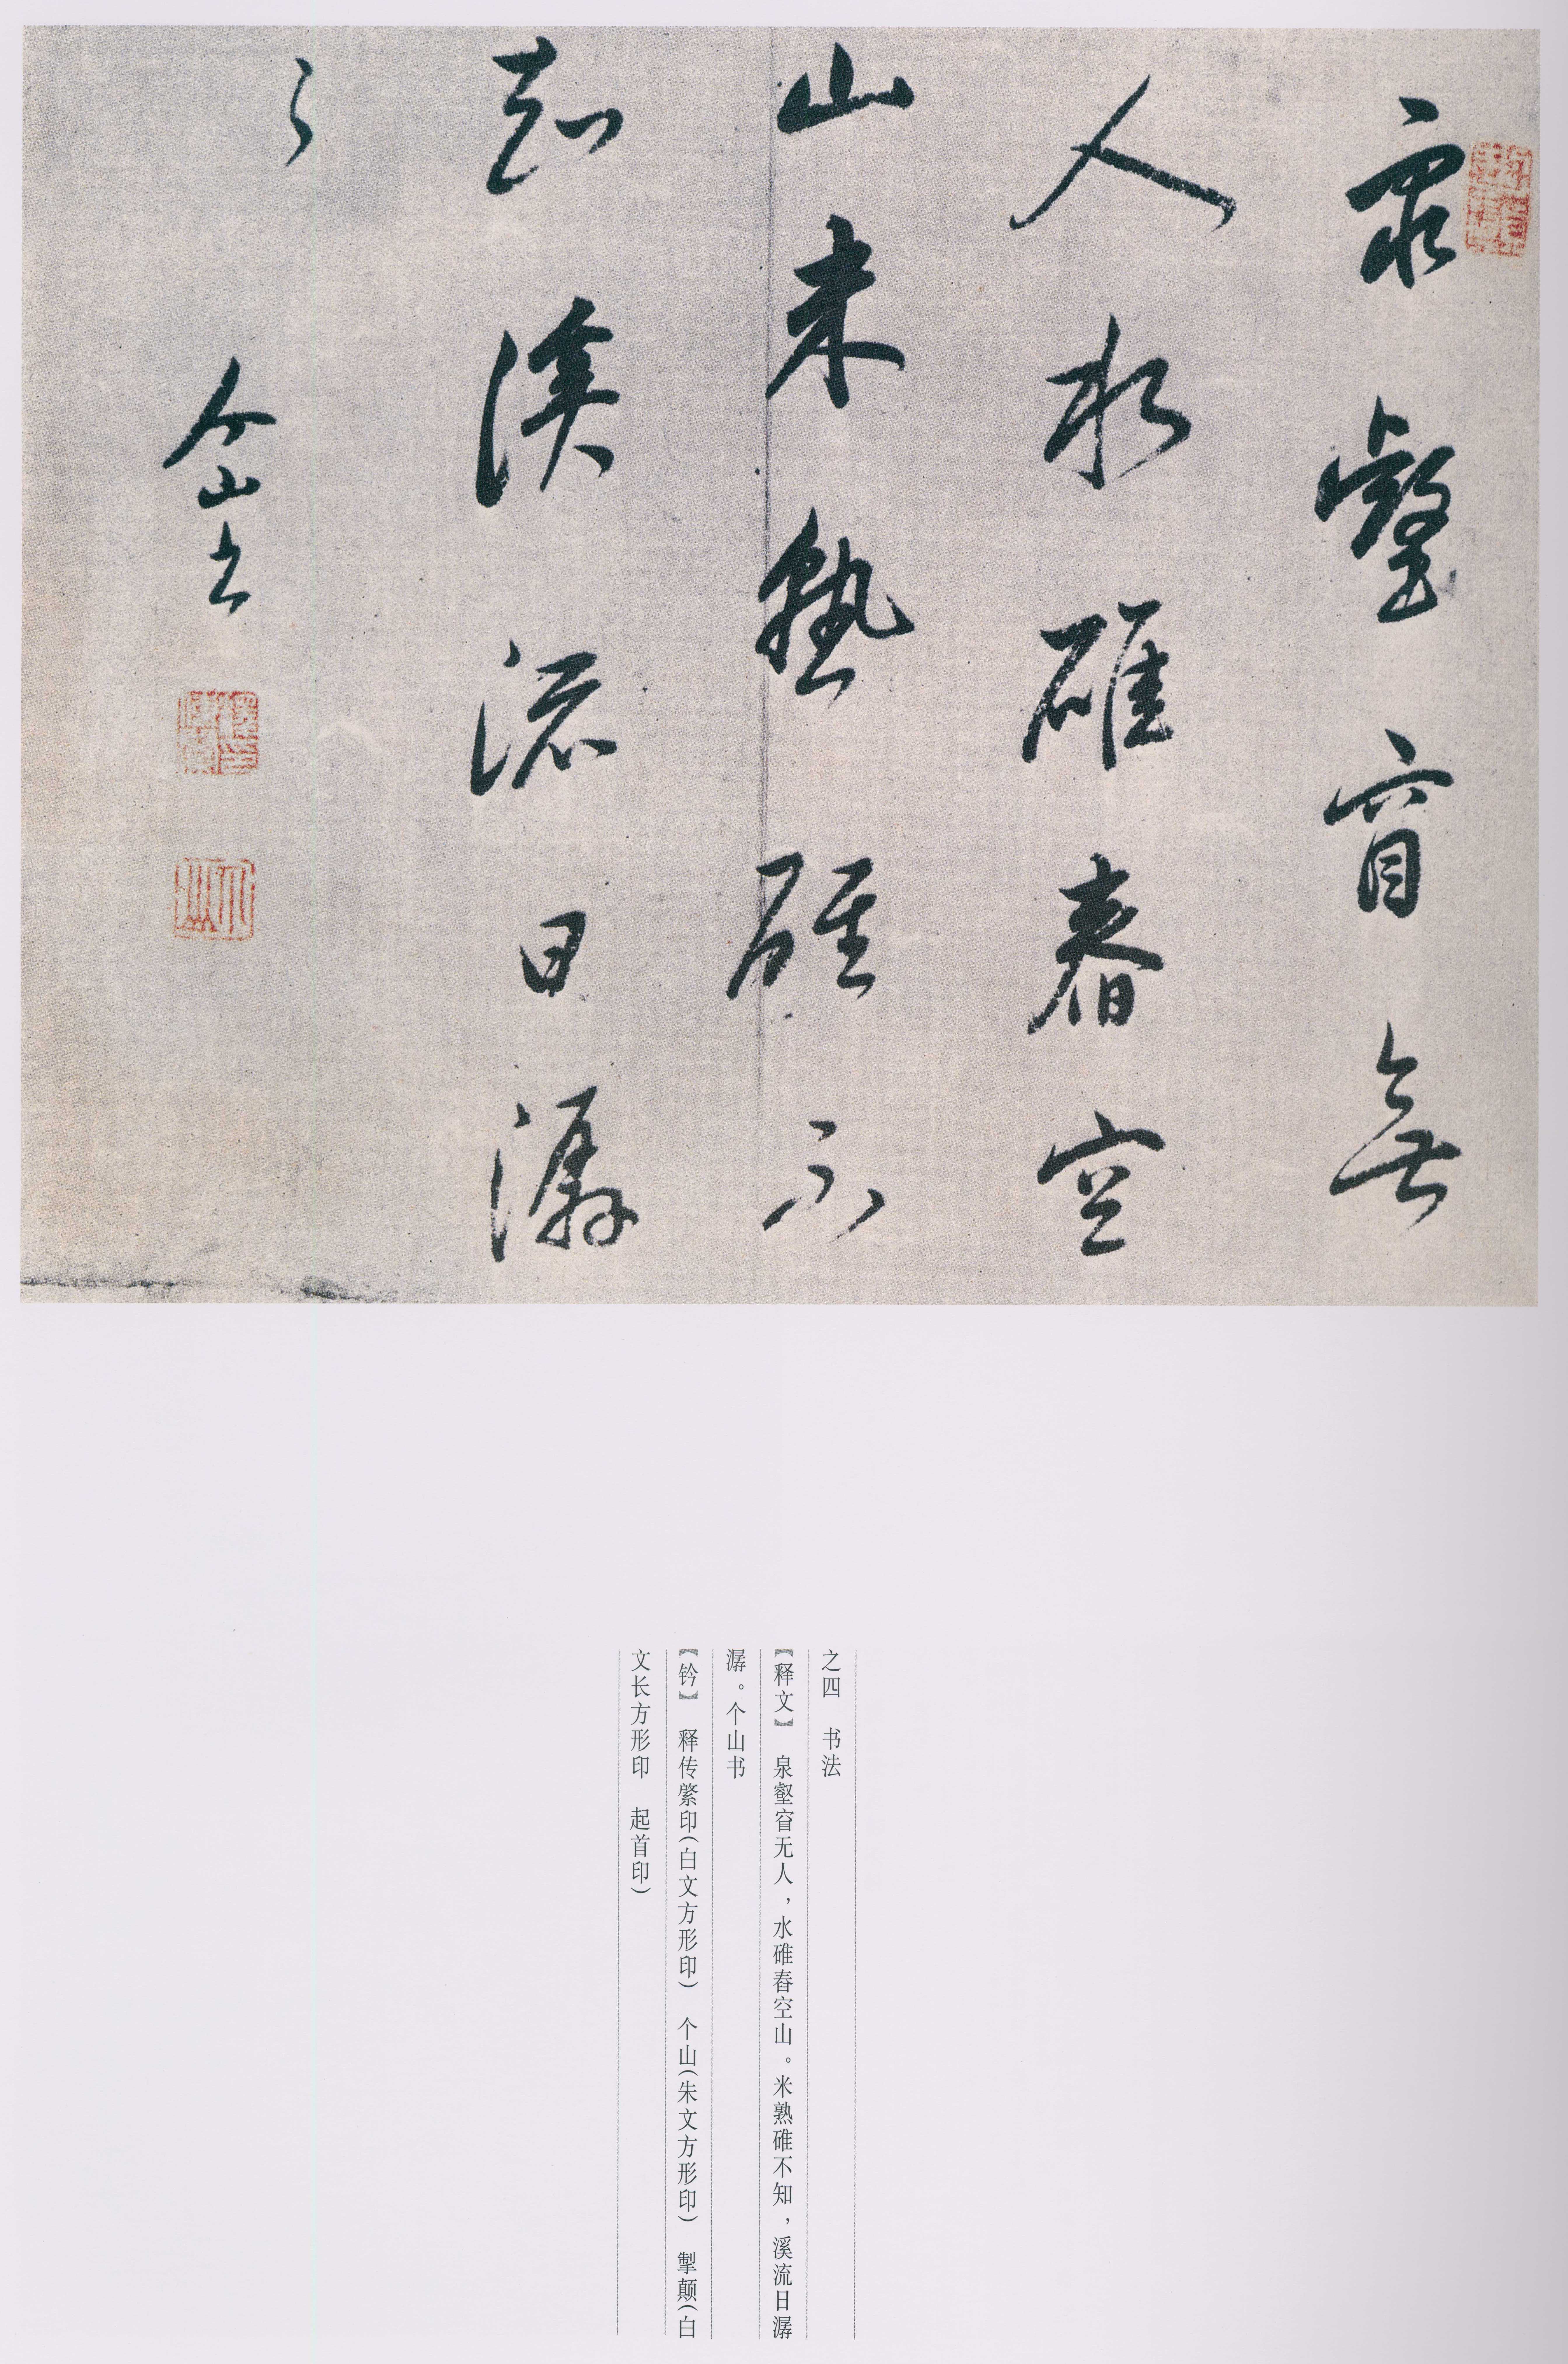 泉壑窅無
人水碓舂空
山米熟碓不
知溪流日潺
〻
个山書
之四 书法
【释文】 泉壑窅无人，水碓舂空山。米熟碓不知，溪流日潺
潺。个山书
【钤】 释传綮印（白文方形印） 个山（朱文方形印） 掣颠（白
文长方形印 起首印）